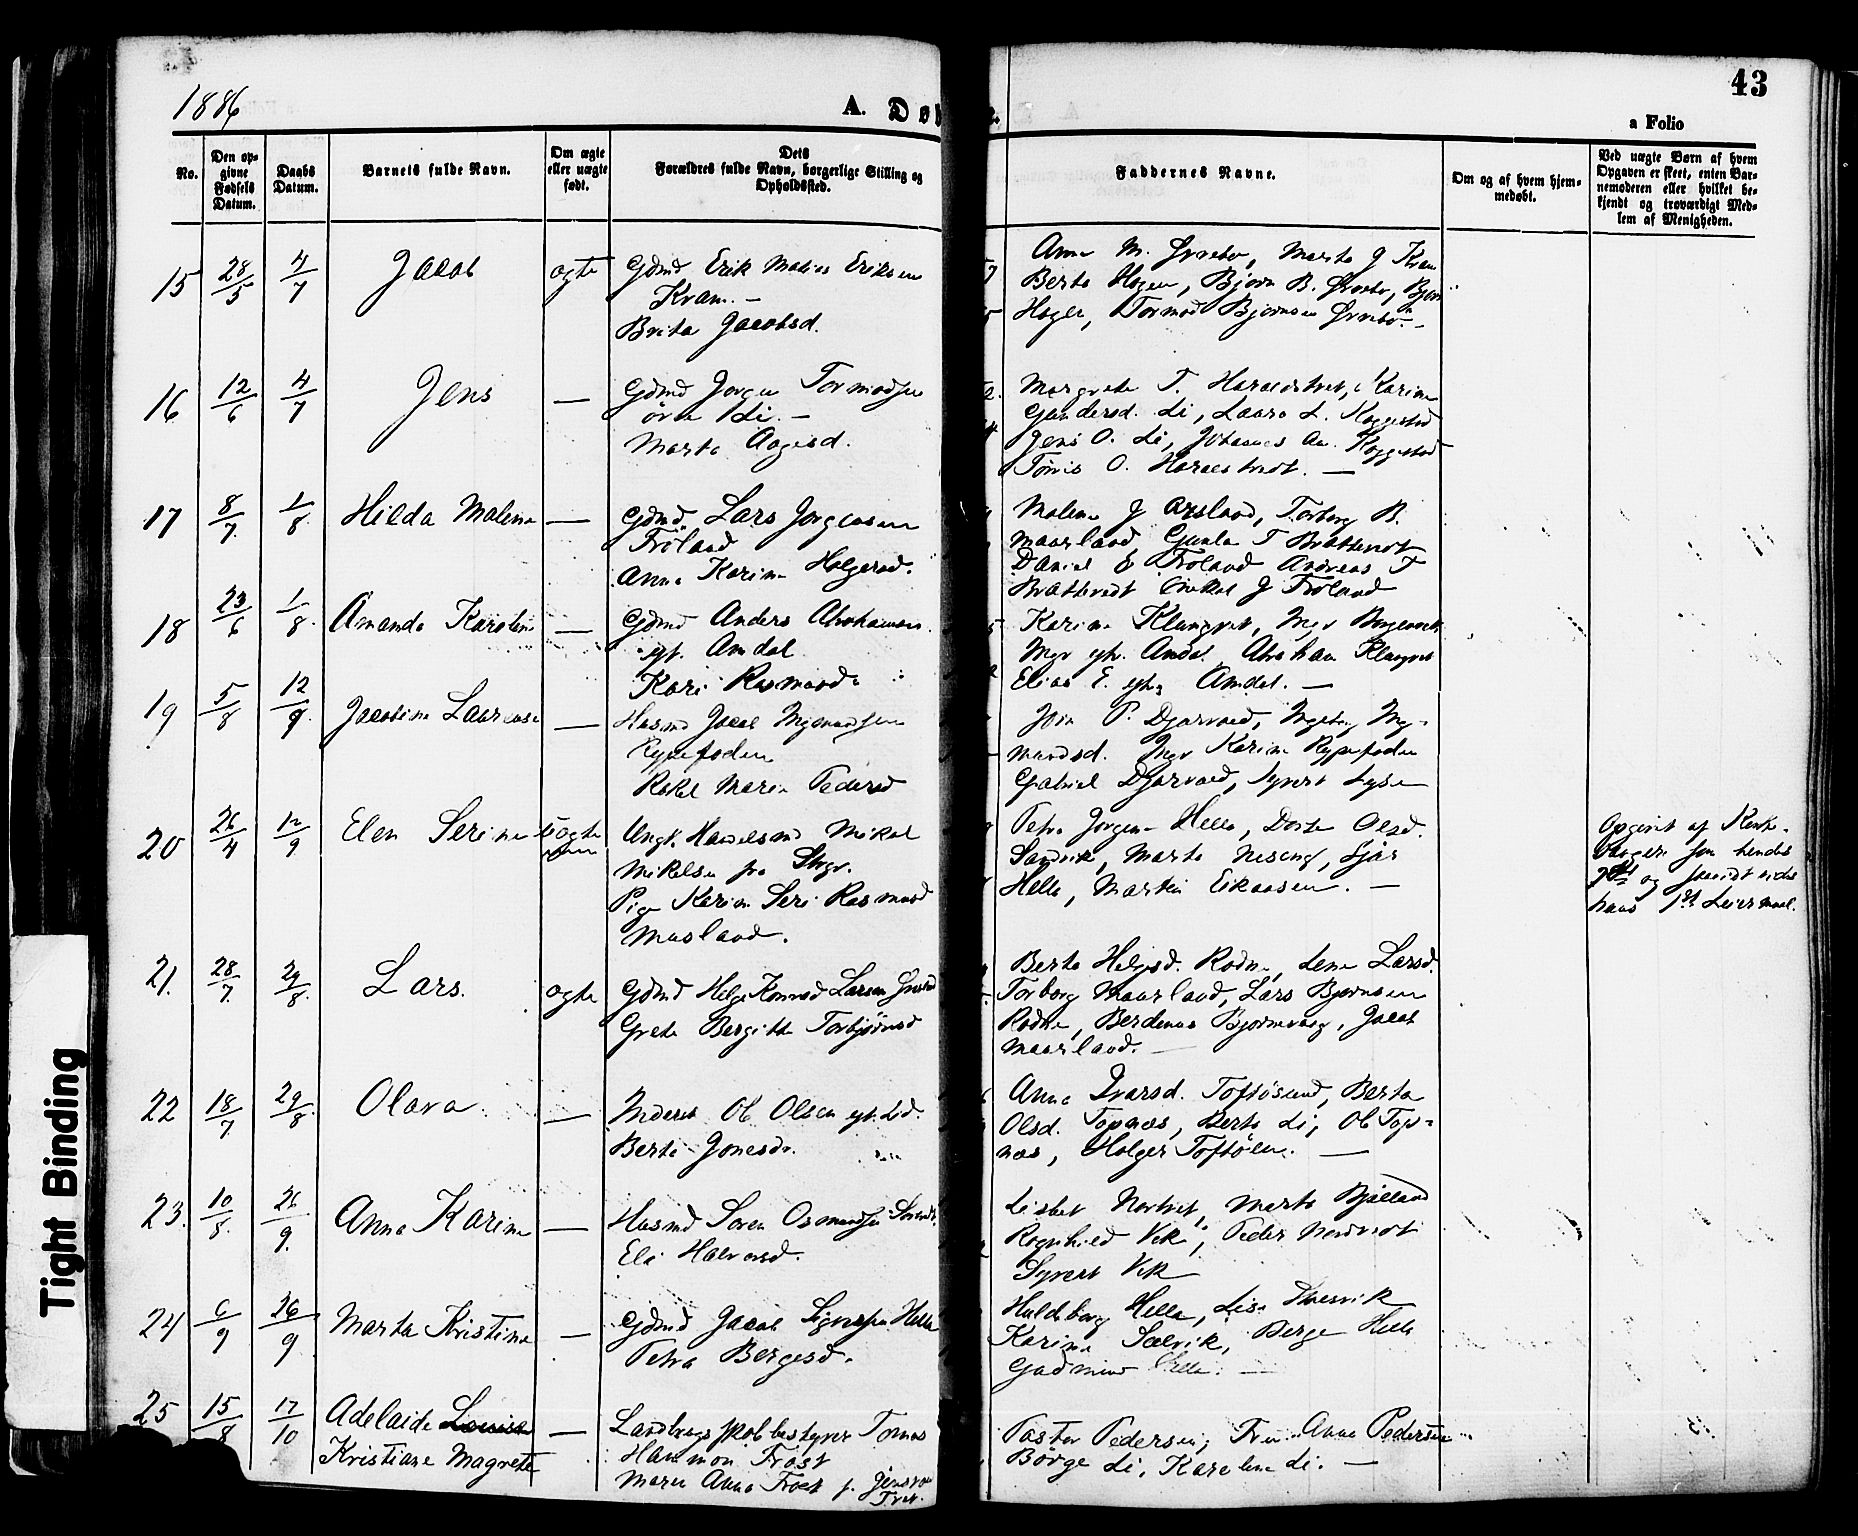 1886
A. Døb
43
a Folio
No.
Den opgivne Fødsels Datum.
Daabs Datum.
Barnets fulde Navn.
Om ægte eller uægte født.
Dets
Forældres fulde Navn, borgerlige Stilling og
Opholdssted.
Faddernes Navne.
Om og af hvem hjemmedøbt.
Ved uægte Børn af hvem
Opgaven er skeet, enten Bar-
nemoderen eller hvilket be-
kjendt og troværdigt Med-
lem af Menigheden.
15 28/5 4/7 Jacob ægte Gdmd Erik Matias Eriksen
Kram. —
Brita Jacobsd.
Anna M. Ørnebo, Marta J Kram
Berta Hogen, Bjørn B. Ørnebo, Bjørn
Hogen, Tormod Bjørnsen Ørnebø. —
16 12/6 4/7 Jens — Gdmd Jørgen Tormodsen
øvre Li. —
Marta Aagesd.
Margrete T. Haraldstvet, Karine
Gundersd. Li, Laara L. Kaggestad
Jens O. Li, Johannes Aa. Kaggestad
Tønis O. Haraldstvedt. —
17 8/7 1/8 Hilda Malene — Gdmd. Lars Jørgensen
Frøland
Anna Karine Holgersd.
Malene J Aasland, Torborg B.
Maarland Gunla T Brattetvedt
Daniel E Frøland Andreas T
Brattetvedt Mikal J Frøland
18 23/6 1/8 Amanda Karoline — Gdmd Anders Abrahamsen
yt. Amdal
Kari Rasmusd.
Karine Klungtvet, Inger
Inger yt. Amdal, Abraham Klungtvet
Elias E. ytre Amdal. —
19 5/8 12/9 Jacobine Laurense — Husmd Jacob Ingemundsen
Rypefoden
Rakel Marie Pedersd
P. Djørvaad, Ingeborg Inge-
mundsd. Inger Karine Rypefoden
Gabriel Djørvaad, Syvert Lysen
20 26/4 12/9 Elen Serine Uægte Ungk. Handelsmd Mikal
Mikalsen fra Stvgr.
Pige Karen Seri Rasmusd
Masland.
Petra Jørgen. Hella, Dorte Olsd.
Sandvik, Marta Neseng, Sjur
Hella, Martin Erikasen. —
Opgivet af Kirke-
værgen som hendes
2det og saavidt vides
hans 1ste Leiermaal.
21. 28/7 29/8 Lars. ægte Gdmd Helge Konrad Larsen
Grete Bergitte Torbjørnsd
Berta Helgesd. Rodne, Lene Larsd.
Torborg Maarland, Lars Bjørnsen
Rodne, Berdenas Bjørnevaag, Jacob
Maarland. —
22 18/7 29/8 Olava. — Inderst Ole Olsen yt. Lid.
Berta Jonesd.
Anna Ivarsd. Toftøsund, Berta
Olsd. Topnæs, Berta Li, Ole Top-
næs, Holger Toftøen. —
23. 10/8 26/9. Anna Karine — Husmd Søren Osmundsen
Eli Halvorsd.
Lisbet Nortvet, Marta Bjelland
Ragnhild Vik, Peder Nordtvedt
Syvert Vik
24 6/9 26/9 Marta Kristine — Gdmd Jacob Sigversen Hella
Petra Bergesd.
Huldborg Hella, Lise
Karine Sælvik, Berge Hella
Gudmund Hella. —
25 15/8 17/10 Adelaide Louise
Kristiane Magrete — Landbrugsskolebestyrer Tomas
Hammon Frost
Maren Anna Frost f. Jensson
Pastor Pedersen, Fru Anna Pedersen
Børge Li, Karoline Li. —
Tight Binding